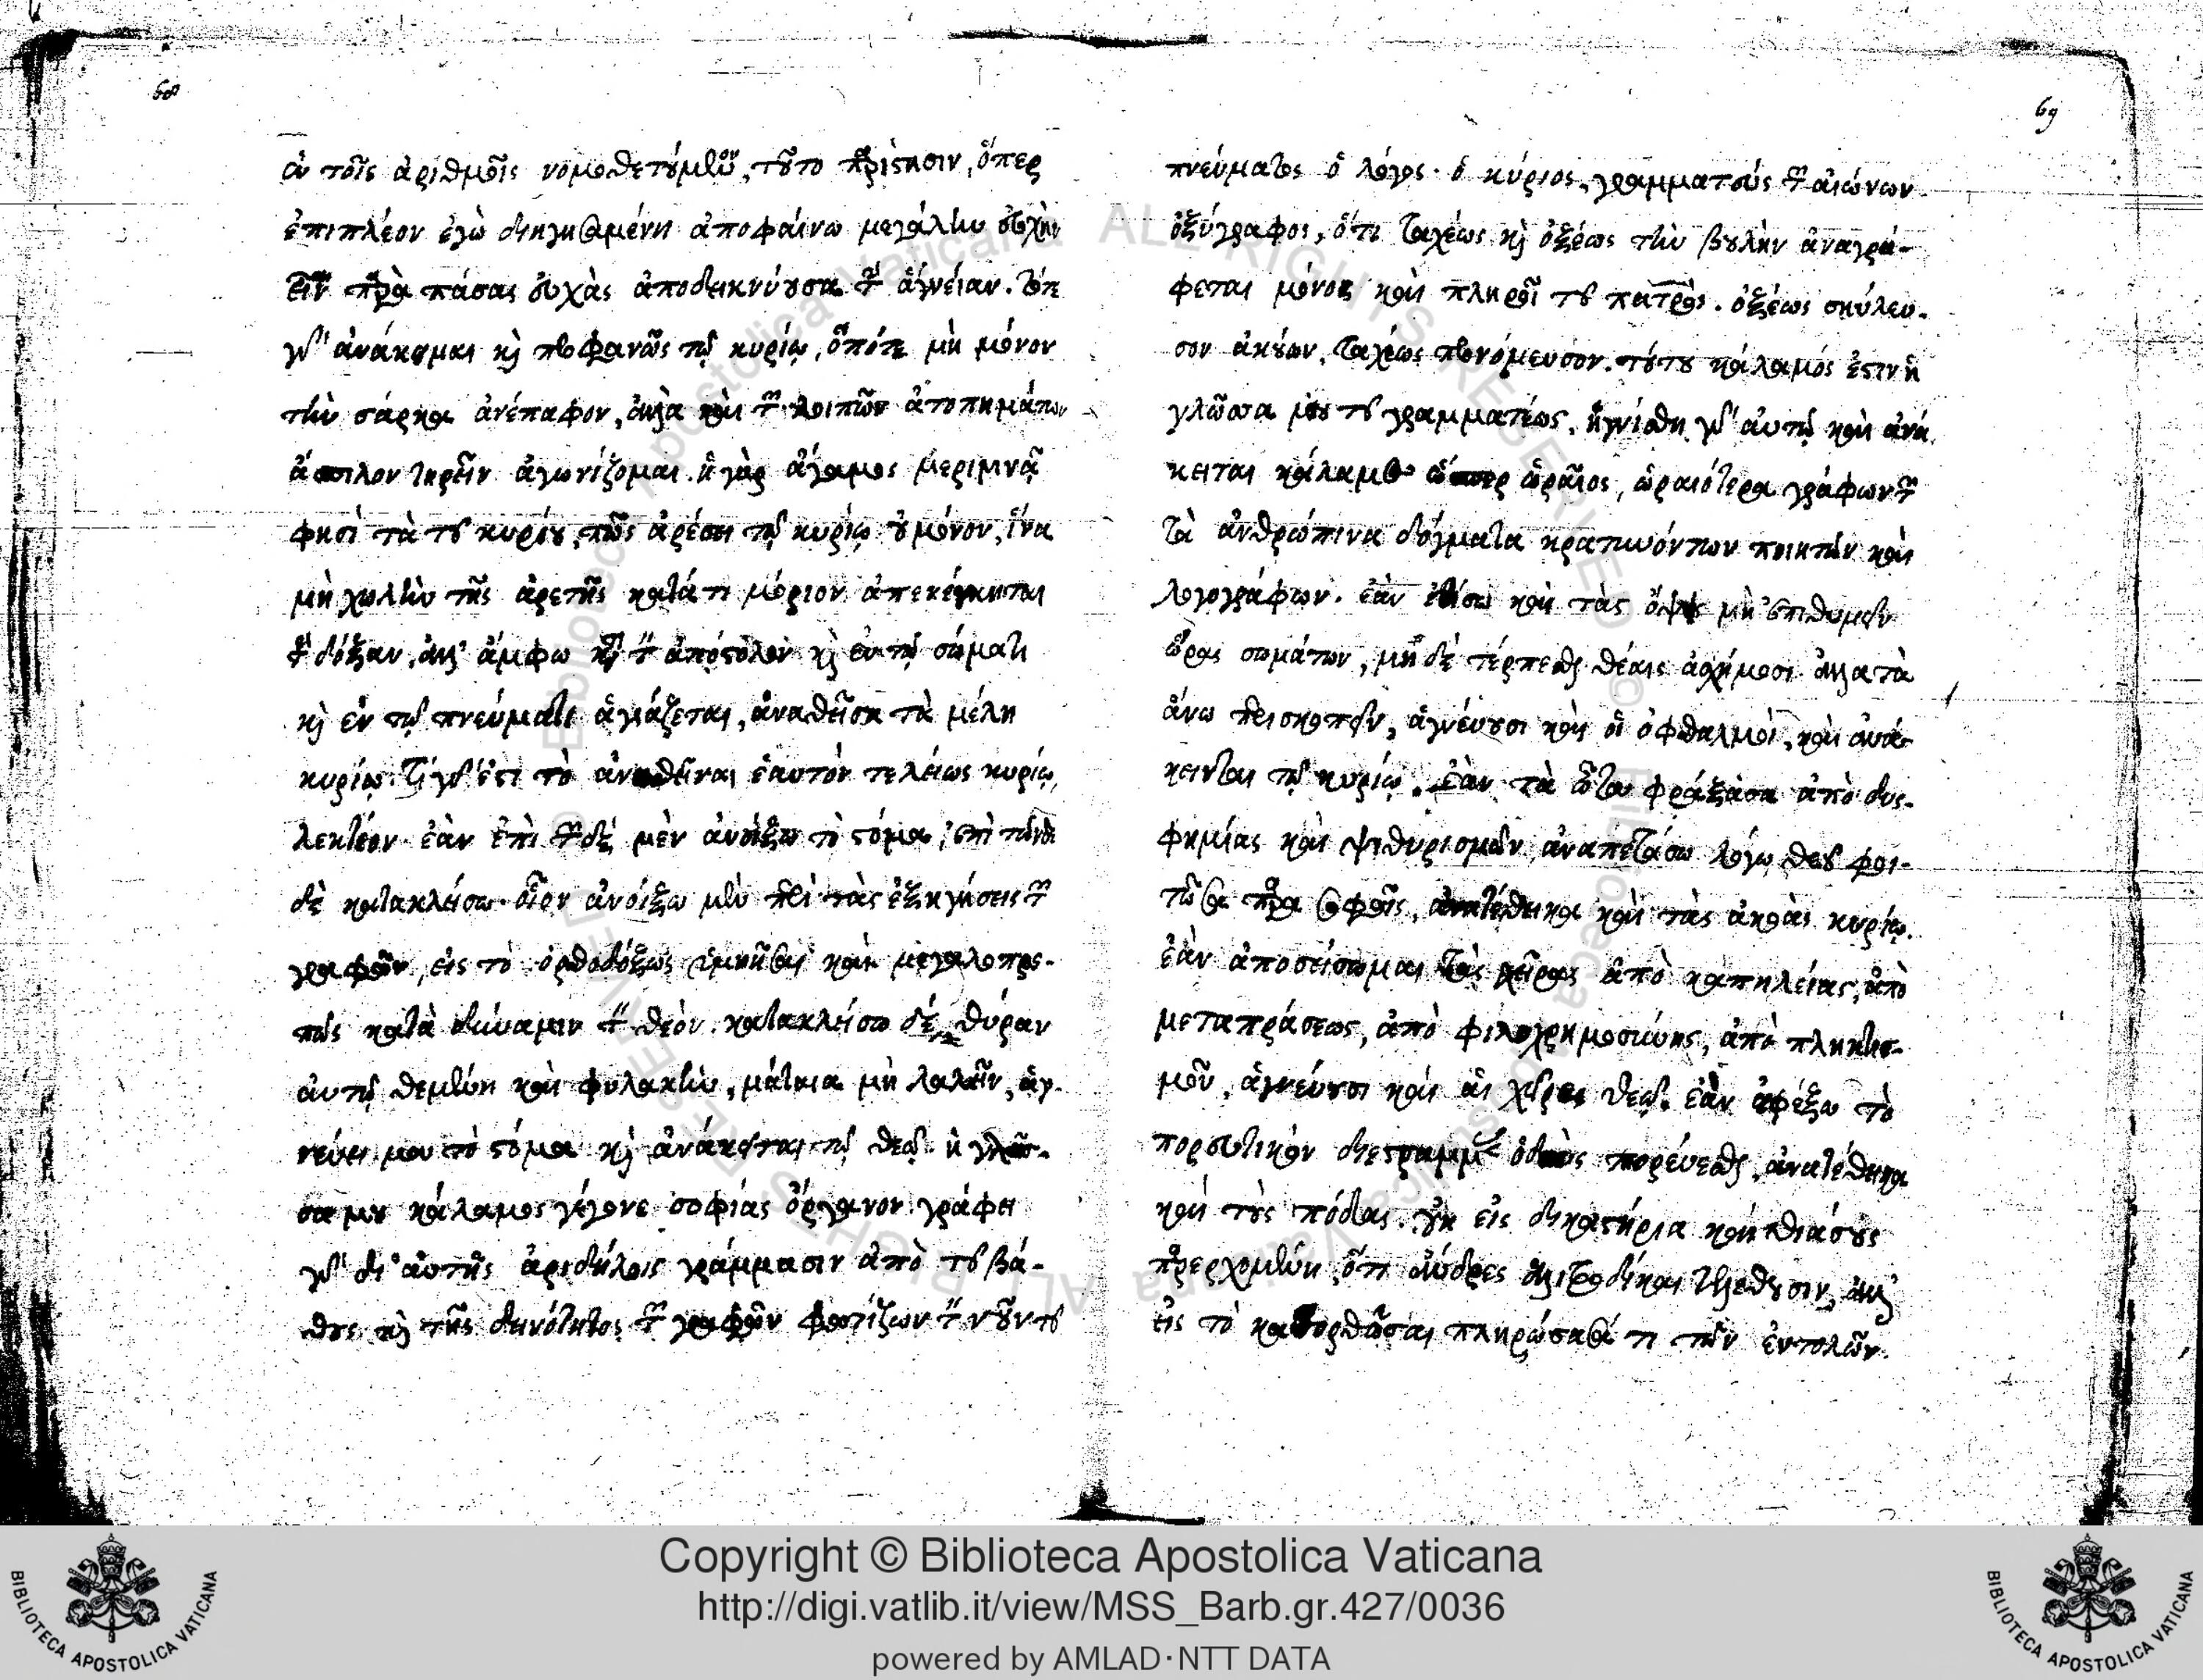 68
ἐν τοῖς ἀριθμοῖς νομοθετούμενον, τοῦτο παρίστησιν, ὅπερ
ἐπιπλέον ἐγὼ διηγησαμένη ἀποφαίνω μεγάλην εὐχὴν
εἶναι παρὰ πάσας εὐχὰς ἀποδεικνύουσα τὴν ἁγνείαν. τότε
γὰρ ἀνάκειμαι καὶ προφανῶς τῷ κυρίῳ, ὁπότε μὴ μόνον
τὴν σάρκα ἀνέπαφον, ἀλλὰ καὶ τῶν λοιπῶν ἀτοπημάτων
ἄσπιλον τηρεῖν ἀγωνίζομαι. ἡ γὰρ ἄγαμος μεριμνᾷ
φησὶ τὰ τοῦ κυρίου, πῶς ἀρέσει τῷ κυρίῳ οὐ μόνον, ἵνα
μὴ χωλὴν τῆς ἀρετῆς κατά τι μόριον ἀπενέγκηται
τὴν δόξαν, ἀλλ' ἄμφω κατὰ τὸν ἀπόστολον καὶ ἐν τῷ σώματι
καὶ ἐν τῷ πνεύματι ἁγιάζεται, ἀναθεῖσα τὰ μέλη
κυρίῳ. Τί γάρ ἐστι τὸ ἀναθεῖναι ἑαυτὸν τελείως κυρίῳ,
λεκτέον. ἐὰν ἐπὶ τῶνδε μὲν ἀνοίξω τὸ στόμα, ἐπὶ τῶνδε
δὲ κατακλείσω. οἷον ἀνοίξω μὲν περὶ τὰς ἐξηγήσεις τῶν
γραφῶν, εἰς τὸ ὀρθοδόξως ὑμνῆσαι καὶ μεγαλοπρε-
πῶς κατὰ δύναμιν τὸν θεόν. κατακλείσω δὲ, θύραν
αὐτῷ θεμένη καὶ φυλακὴν, μάταια μὴ λαλεῖν, ἁγ-
νεύει μου τὸ στόμα καὶ ἀνάκειται τῷ θεῷ. ἡ γλῶσ-
σα μου κάλαμος γέγονε σοφίας ὄργανον. γράφει
γὰρ δι' αὐτῆς ἀριδήλοις γράμμασιν ἀπὸ τοῦ βά-
θους καὶ τῆς δεινότητος τῶν γραφῶν φωτίζων τὸν νοῦν τοῦ
69
πνεύματος ὁ λόγος. ὁ κύριος, γραμματεὺς τῶν αἰώνων
ὀξύγραφος, ὅτι ταχέως καὶ ὀξέως τὴν βουλὴν ἀναγρά-
φεται μόνος καὶ πληροῖ τοῦ πατρὸς. ὀξέως σκύλευ-
σον ἀκούων, ταχέως προνόμευσον. τούτου κάλαμός ἐστιν ἡ
γλῶσσα μου τοῦ γραμματέως. ἡγνίσθη γὰρ αὐτῷ καὶ ἀνά
κειται κάλαμος ὥσπερ ὡραῖος, ὡραιότερα γράφων τῶν
τὰ ἀνθρώπινα δόγματα κρατυνόντων ποιητῶν καὶ
λογογράφων. ἐὰν ἐθίσω καὶ τὰς ὄψεις μὴ ἐπιθυμεῖν
ὥρας σωμάτων, μὴ δὲ τέρπεσθαι θέαις ἀσχήμοσι ἀλλὰ τὰ
ἄνω περισκοπεῖν, ἁγνεύουσι καὶ οἱ ὀφθαλμοὶ, καὶ ἀνά-
κεινται τῷ κυρίῳ. ἐὰν τὰ ὦτα φράξασα ἀπὸ δυς-
φημίας καὶ ψιθυρισμῶν ἀναπετάσω λόγῳ θεοῦ φοι-
τῶσα παρὰ σοφοῖς, ἀνατέθεικα καὶ τὰς ἀκοὰς κυρίῳ.
ἐὰν ἀποσείσωμαι τὰς χεῖρας ἀπὸ καπηλείας, ἀπὸ
μεταπράσεως, ἀπὸ φιλοχρημοσύνης, ἀπὸ πληκτισ-
μοῦ, ἁγνεύουσι καὶ αἱ χεῖρες θεῷ. ἐὰν ἀφέξω τὸ
πορευτικὸν διεστραμμένας ὁδοὺς πορεύεσθαι, ἀνατέθεικα
καὶ τοὺς πόδας. οὐκ εἰς δικαστήρια καὶ θιάσους
παρερχομένη, ὅπη ἄνδρες ἀλιτροδίκαι τελέθουσιν, ἀλλ'
εἰς τὸ κατορθῶσαι πληρώσασά τι τῶν ἐντολῶν.
Copyright © Biblioteca Apostolica Vaticana
http://digi.vatlib.it/view/MSS_Barb.gr.427/0036
powered by AMLAD·NTT DATA
BIBLIOTECA APOSTOLICA VATICANA
BIBLIOTECA APOSTOLICA VATICANA